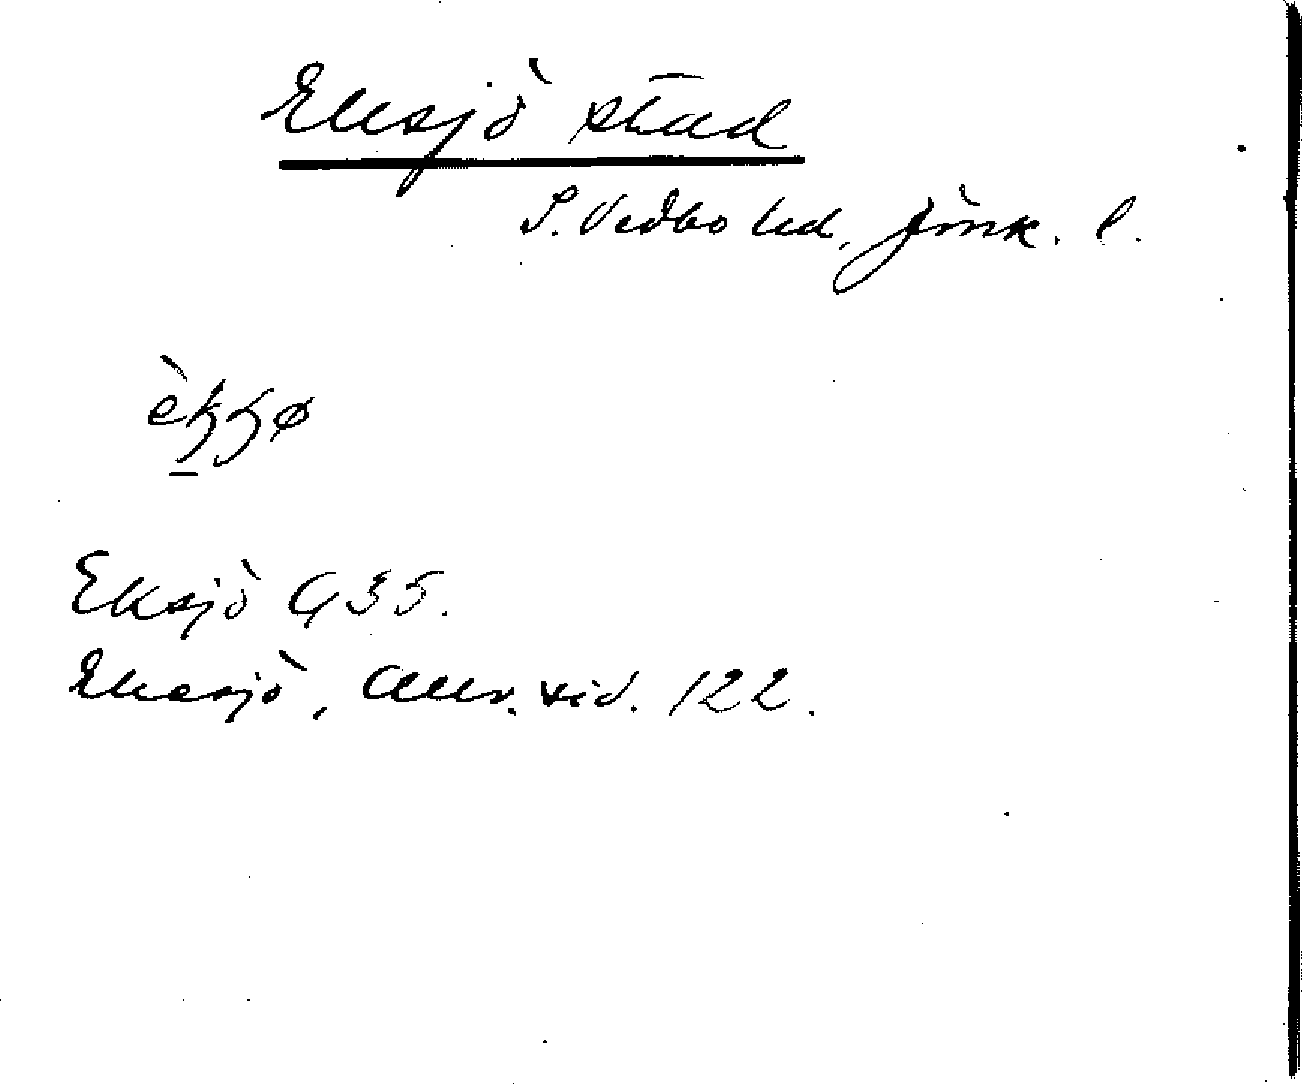 Eksjö stad
S. Vedbo hd, Jönk. l.
Eksjö G 35.
Ekesjö, Allm. tid. 122.